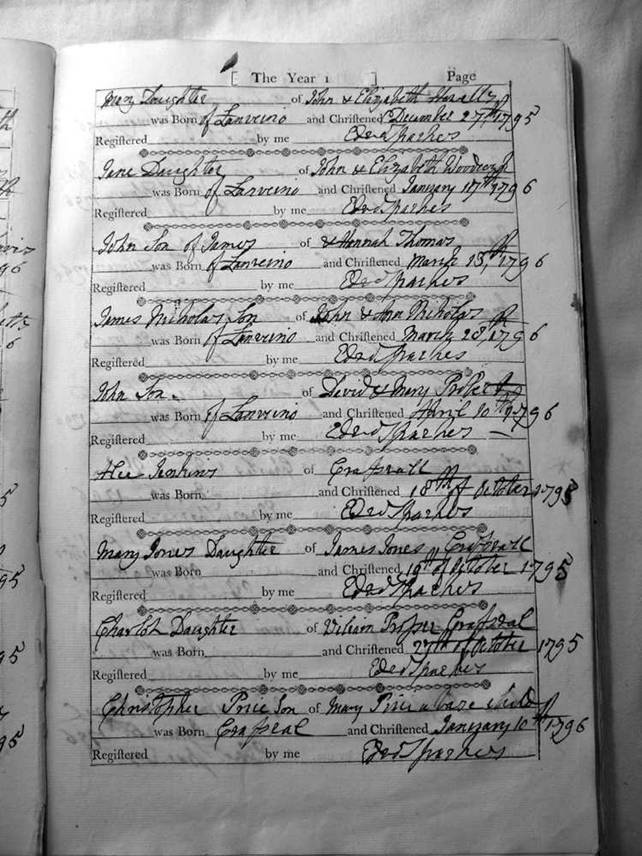 [ The Year 1 ] Page
Mary Daughter of John & Elizabeth
was Born of Lanveino and Christened December 27th 1795
Registered by me Edwd Sparkes
Jane Daughter of John & Elizabeth
was Born of Lanveino and Christened January 17th 1796
Registered by me Edwd Sparkes
John Son of James of & Hannah Thomas
was Born of Lanveino and Christened March 13th 1796
Registered by me Edwd Sparkes
James Nicholas Son of John & Ann Nicholas
was Born of Lanveino and Christened March 28th 1796
Registered by me Edwd Sparkes
John Son of David & Mary
was Born of Lanveino and Christened April 10th 1796
Registered by me Edwd Sparkes
Jenkins of Crasswall
was Born and Christened 18th of October 1795
Registered by me Edwd Sparkes
Mary Jones Daughter of James Jones
was Born and Christened of October 1795
Registered by me Edwd Sparkes
Daughter of
was Born and Christened 27th of October 1795
Registered by me Edwd Sparkes
Christopher Price Son of Mary Price a base child
was Born and Christened January 10th 1796
Registered by me Edwd Sparkes